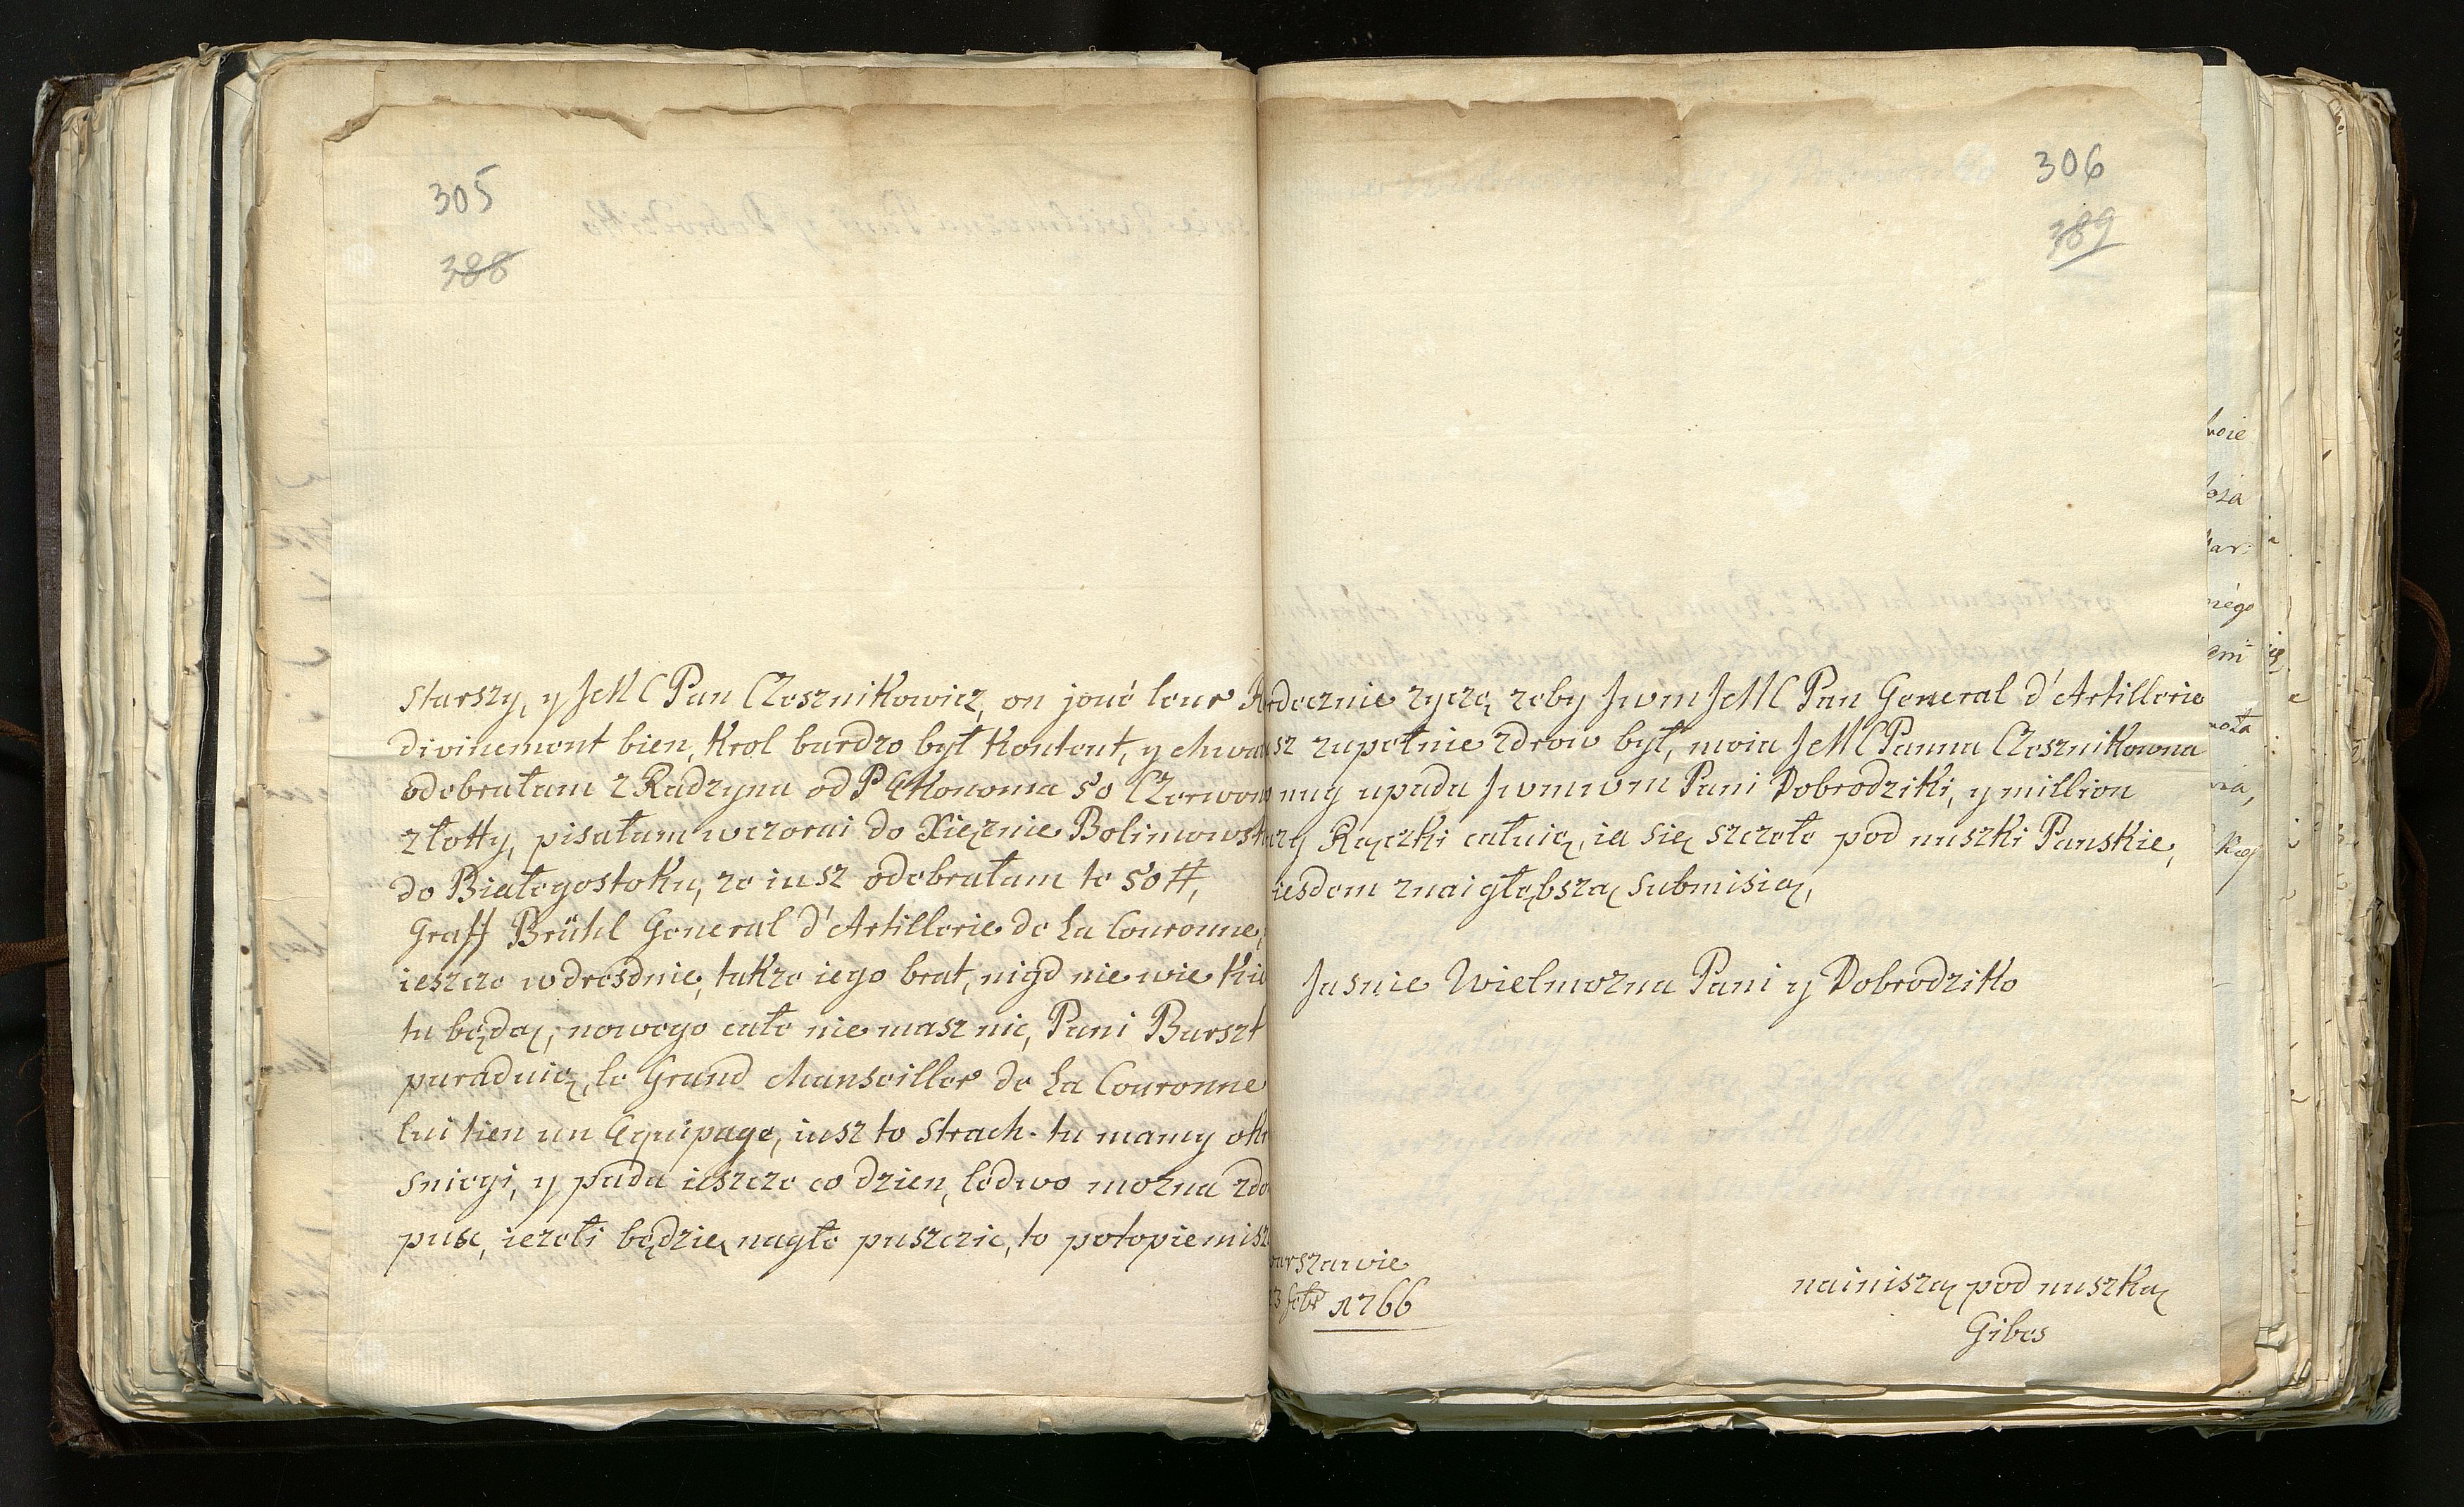 305
388
starszy, y JeMC Pan Czesznikowicz, on joué leur
divinement bien, Krol bardzo był kontent, y chwa
odebrałam z Radzyna od P Ekonoma 50 Czerwon
złotty, pisałam wczorai do Xiężnie Bolimowsk
do Białegostoku, ze iusz odebrałam te 50 #,
Graff Brühl General d'Artillerie de la Couronne,
ieszcze w dresdnie, takze iego brat, nigd nie wie ki
tu będą, nowego całe nie masz nic, Pani Burszt
paraduię, le Grand chansciller de La Couronne
lui tien un Equipage, iusz to strach - tu mamy ok
sniegi, y pada ieszcze co dzien, ledwo mozna z do
pusc, iezeli będzie nagle puszczic, to potopiemi
306
389
rdecznie zyczę zeby Jwm JeMC Pan General d'Artillerie
sz zupełnie zdrow był, moia JeMC Panna Czesznikowna
nug upada Jwmwm Pani Dobrodziki, y million
czy Rączki całuię, ia się szczele pod nuszki Panskie,
iesdem z naigłębszą submisią,
Jasnie Wielmozna Pani y Dobrodziko
arszawie
3 febr 1766
nainiszą pod nuszką
Gibes